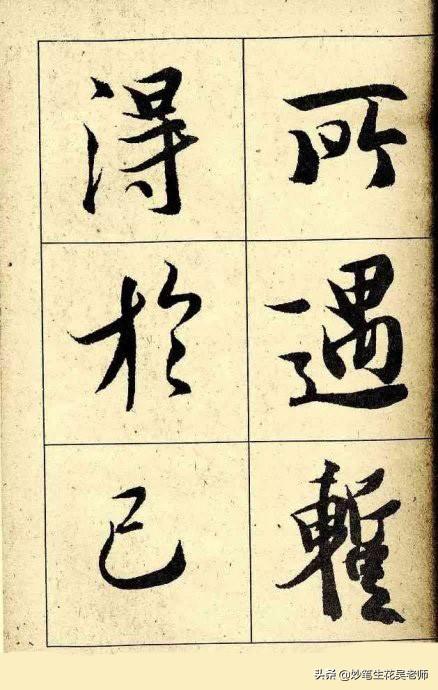 所遇暫
得於己
头条 @妙笔生花吴老师